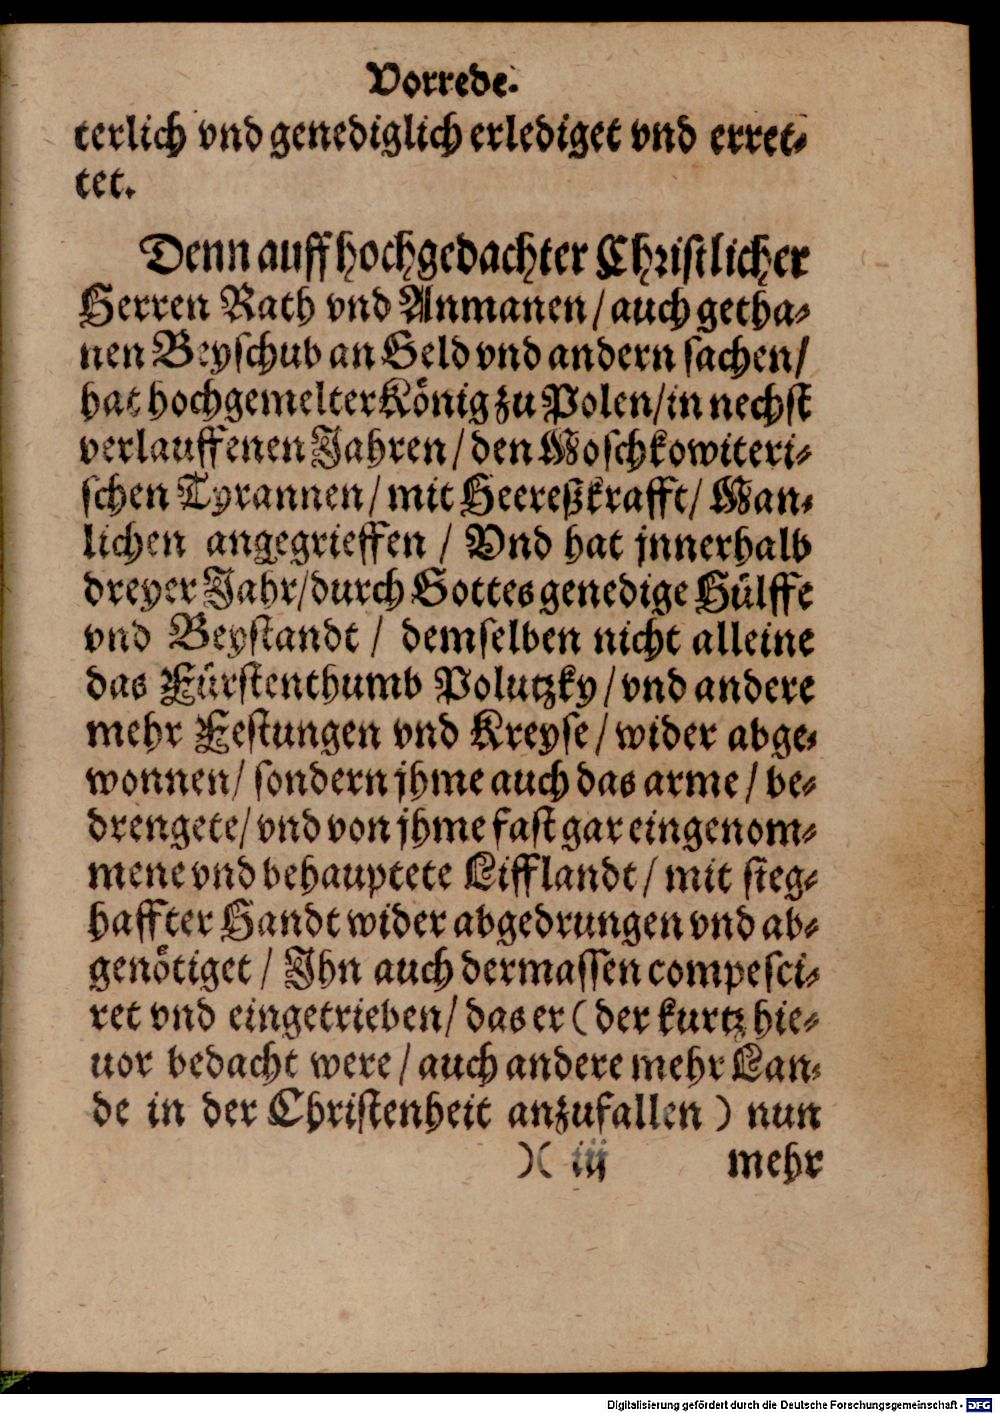 Vorrede.
terlich vnd genediglich erlediget vnd erret-
tet.
Denn auff hochgedachter Christlicher
Herren Rath vnd Anmanen / auch getha-
nen Beyschub an Geld vnd andern sachen /
hat hochgemelter König zu Polen / in nechst
verlauffenen Jahren / den Moschkowiteri-
schen Tyrannen / mit Heereßkrafft / Man-
lichen angegrieffen / Vnd hat jnnerhalb
dreyer Jahr / durch Gottes genedige Hülffe
vnd Beystandt / demselben nicht alleine
das Fürstenthumb Polutzky / vnd andere
mehr Festungen vnd Kreyse / wider abge-
wonnen / sondern jhme auch das arme / be-
drengete / vnd von jhme fast gar eingenom-
mene vnd behauptete Lifflandt / mit sieg-
haffter Handt wider abgedrungen vnd ab-
genötiget / Ihn auch dermassen compesci-
ret vnd eingetrieben / das er ( der kurtz hie-
uor bedacht were / auch andere mehr Lan-
de in der Christenheit anzufallen ) nun
)( iij mehr
Digitalisierung gefördert durch die Deutsche Forschungsgemeinschaft - DFG